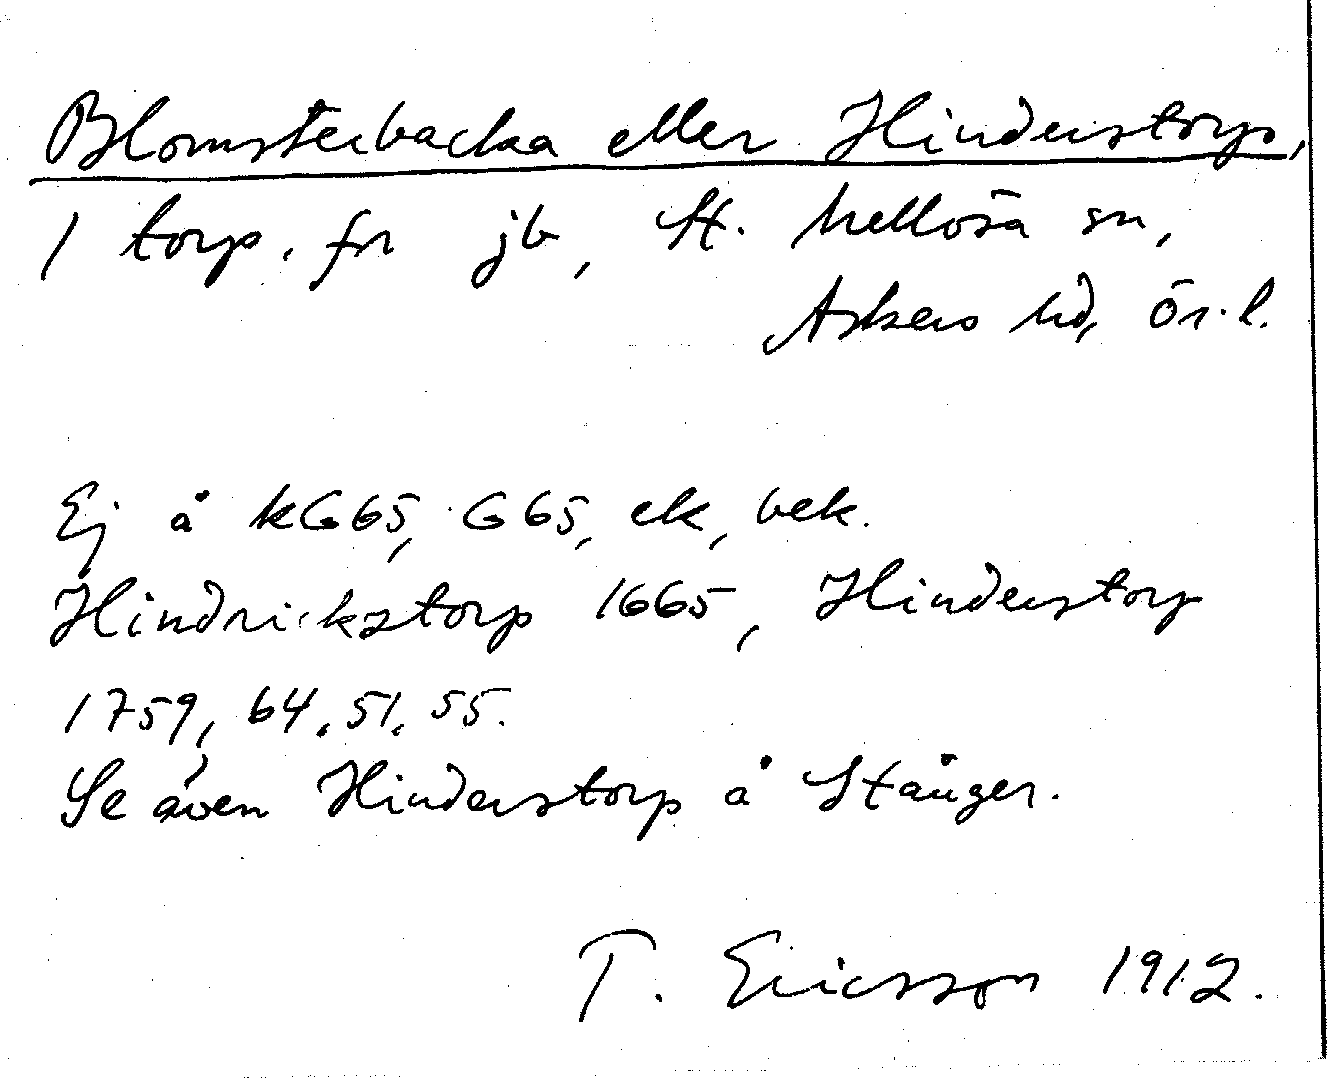 Blomsterbacka eller Hinderstorp,
1 torp. fr jb, St. Mellösa sn,
Askers hd, Ör. l.
Ej å kG65, G65, ek, bek.
Hindrickztorp 1665, Hinderstorp
1759, 64, 51, 55.
Se även Hinderstorp å Stånger.
T. Ericsson 1912.